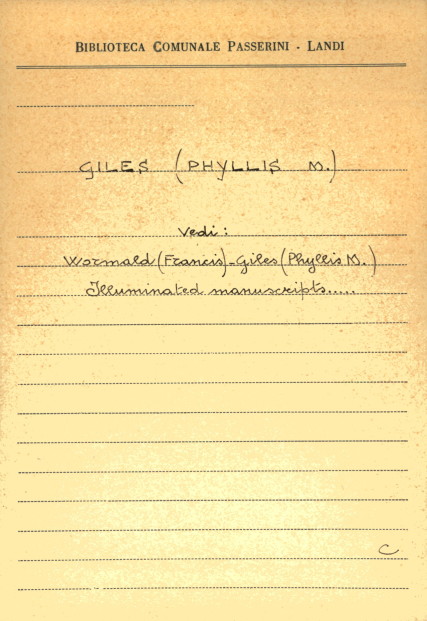 BIBLIOTECA COMUNALE PASSERINI - LANDI
GILES (PHYLLIS M.)
Vedi:
Wormald (Francis) - Giles (Phyllis M.)
Illuminated manuscripts.....
C